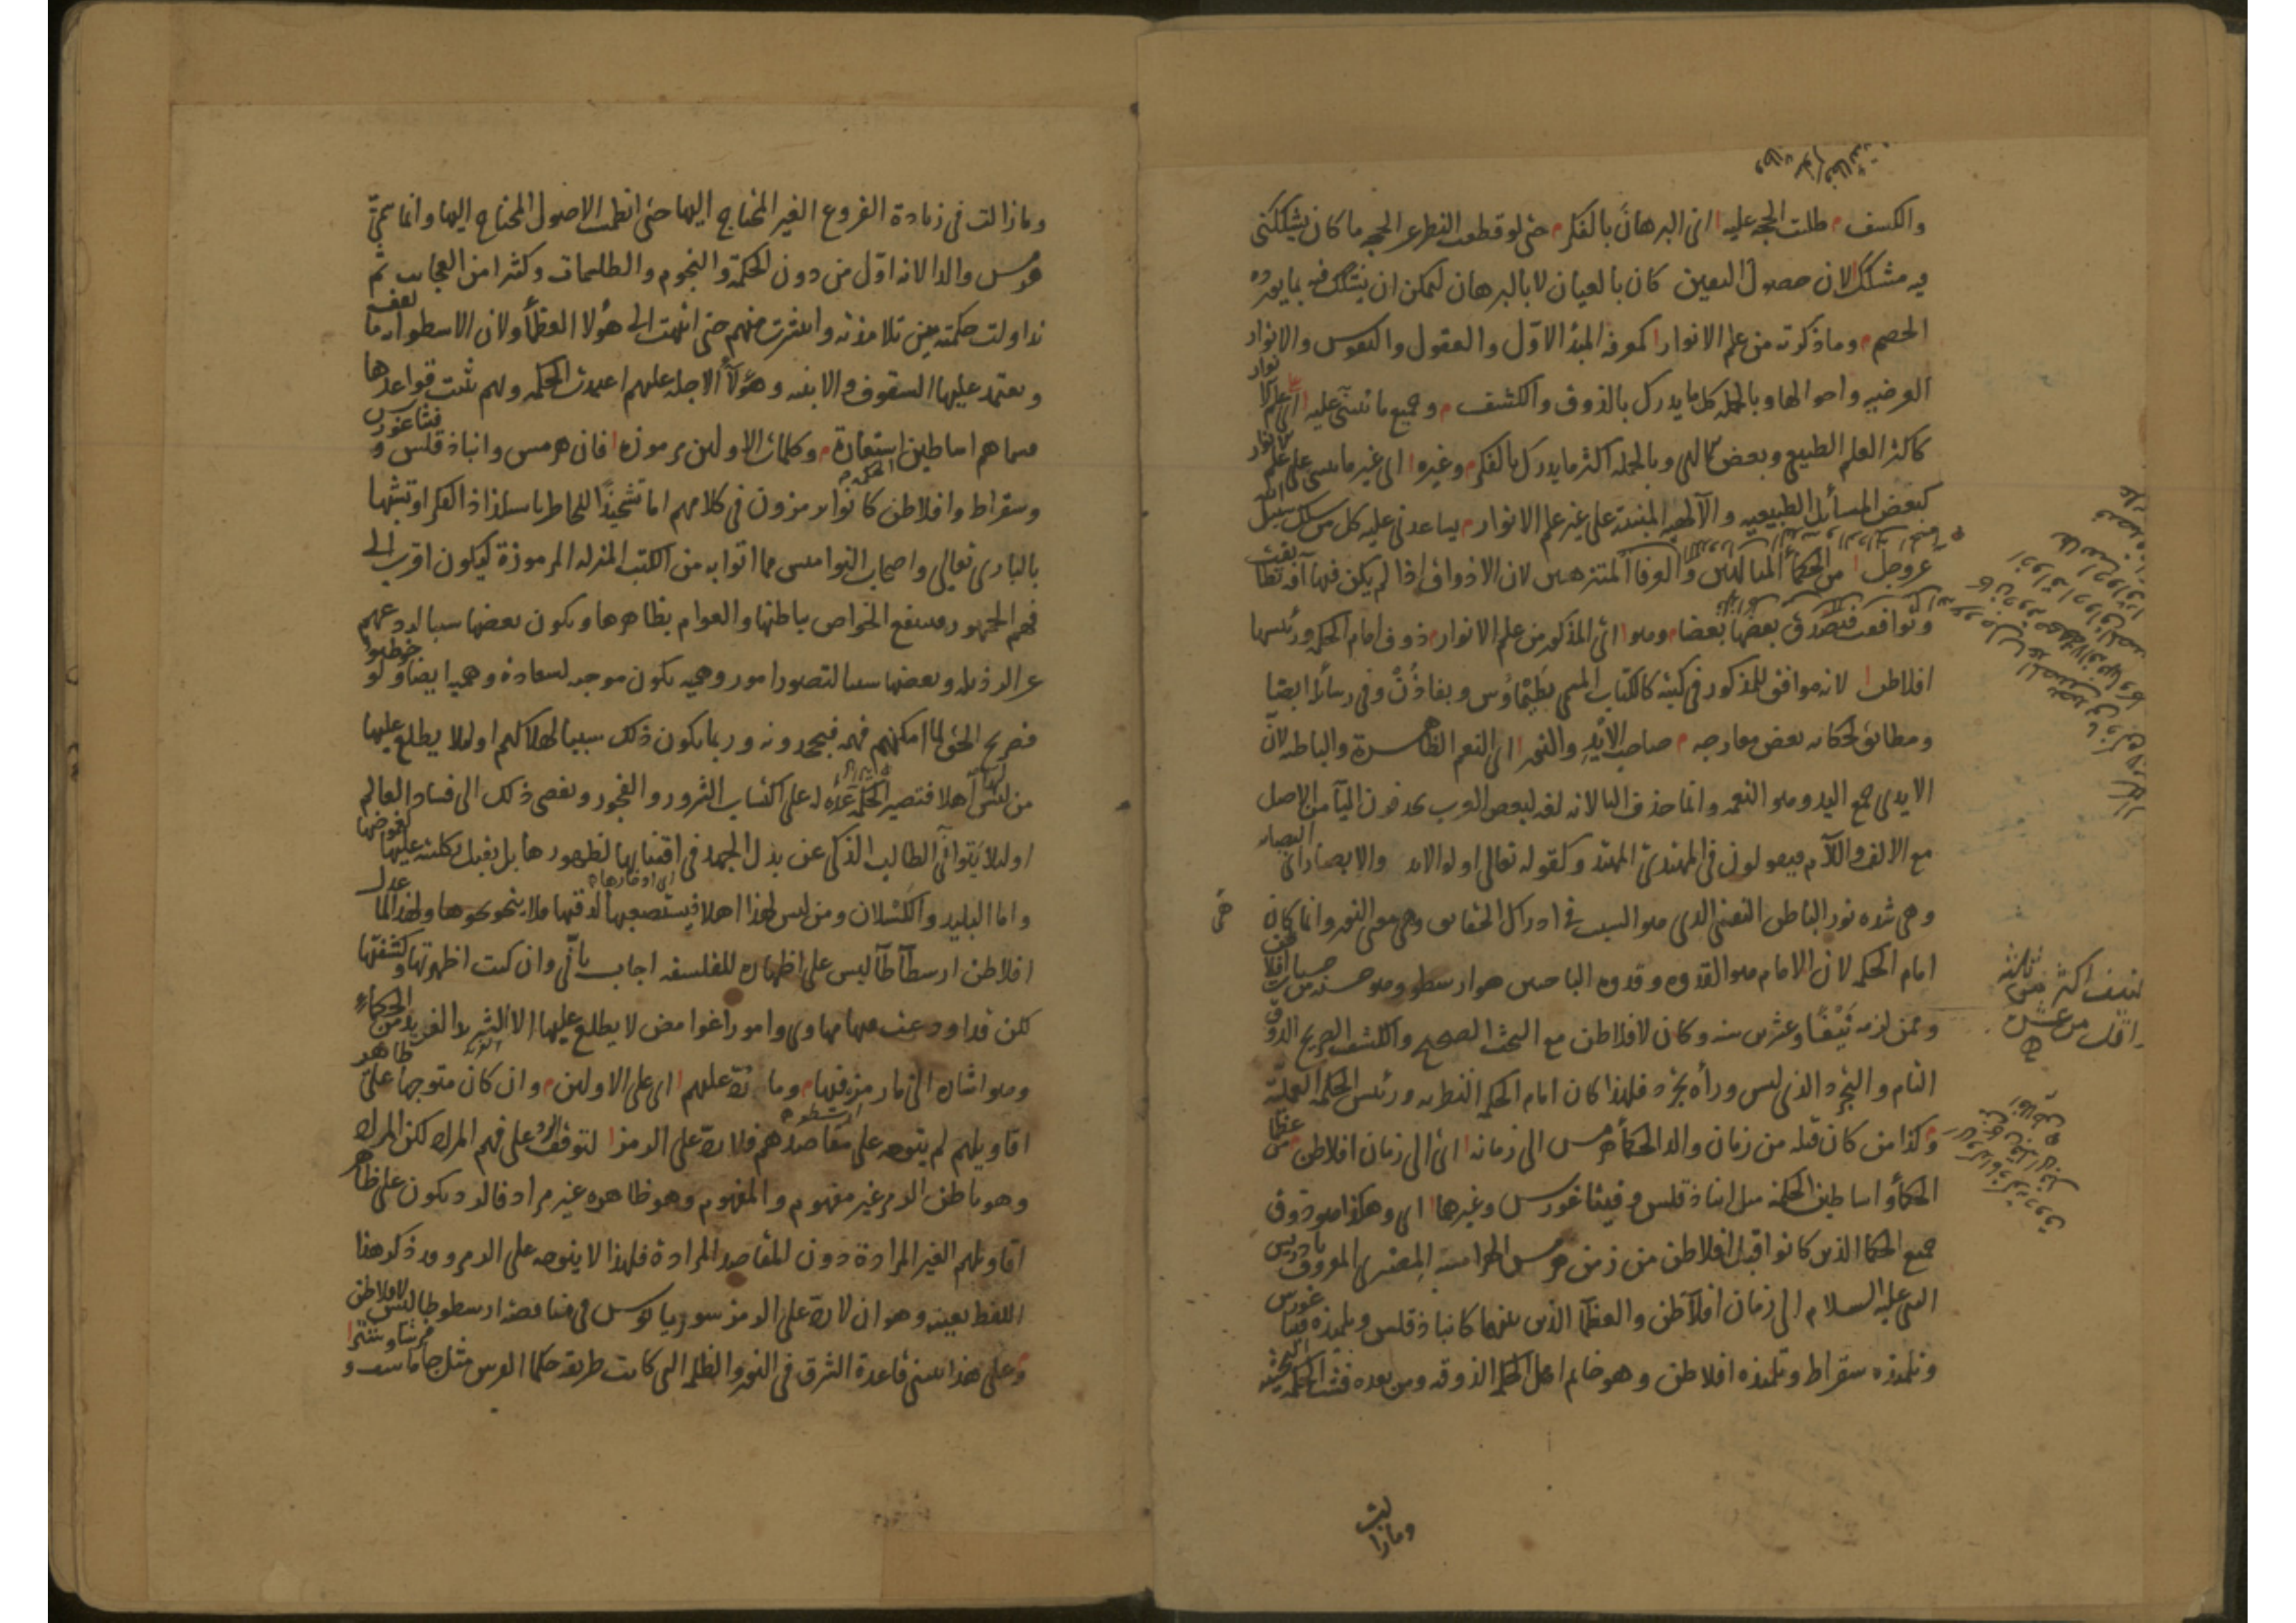 والكشف م طلبت الحجة عليه ا اى البرهان بالفكر م حتى لو قطعت النظر عن الحجة ما كان يشككنى
فيه مشكك لان حصول اليقين كان بالعيان لا بالبرهان ليمكن ان يتشكك فيه بما يورده
الخصم م وما ذكرته من علم الانوار ا كمعرفة المبدأ الاول والعقول والنفوس والانوار
العرضيه واحوالها وبالجمله كل ما يدرك بالذوق والكشف م وجميع ما يبتنى عليه ا اى على علم الانوار
كاكثر العلم الطبيعى وبعض الالهى وبالجمله اكثر ما يدرك بالفكر م وغيره ا اى غير ما يبتنى على علم الانوار
كبعض المسائل الطبيعيه والآلهيه المبتنية على غير علم الانوار م يساعدنى عليه كل من سلك سبيل الله
عز وجل ا من الحكماء المتألهين والعرفاء المتنزهين لان الاذواق اذا لم يكن فيها آفة تطابقت
وتوافقت فتصدق بعضها بعضا م وهو ا اى المذكور من علم الانوار م ذوق امام الحكمه ورئيسها
افلاطن ا لانه موافق للمذكور فى كتبه كالكتاب المسمى بطيماوس وبفاذن وفى رسائله ايضا
ومطابق لحكاية بعض معارجه م صاحب الايد والنور ا اى النعم الظاهرة والباطنه لان
الايدى جمع اليد وهو النعمه وانما حذف اليا لانه لغه لبعض العرب يحذفون اليآ من الاصل
مع الالف واللام فيقولون فى المهتدى المهتد وكقوله تعالى اولى الايد والابصار اى البصائر
وهى شده نور الباطن النفسى الذى هو السبب فى ادراك الحقايق وهى معنى النور وانما كان
امام الحكمه لان الامام هو القدوه وقدوه الباحثين هو ارسطو وهو حسنه من حسنات افلاطن
وممن لزمه نيفا وعشرين سنه وكان لافلاطن مع البحث الصحيح والكشف الصريح الذوق
التام والتجرد الذى ليس وراه تجرد فلهذا كان امام الحكمه النظريه ورئيس الحكمه العمليّه
وكذا من كان قبله من زمان والد الحكماء هرمس الى زمانه ا اى الى زمان افلاطن م من عظما
الحكماء واساطين الحكمه مثل انباذقلس وفيثاغورس وغيرهما ا اى وهكذا هو ذوق
جميع الحكما الذين كانوا قبل افلاطن من زمن هرمس الهرامسه المصرى المعروف بادريس
النبى عليه السلام الى زمان افلاطن والعظما الذين بينهما كانباذقلس وتلميذه فيثاغورس
وتلميذه سقراط وتلميذه افلاطن وهو خاتم اهل الحكمه الذوقيه ومن بعده فشت الحكمه البحثيه
نيف اكثر من ثلثه
اقل من عشره
وما زالت
وما زالت فى زيادة الفروع الغير المحتاج اليها حتى انطمت الاصول المحتاج اليها وانما سمّى
هرمس والدا لانه اوّل من دون الحكمة والنجوم والطلسمات وكثيرا من العجايب ثم
تداولت حكمته بين تلامذته وانتشرت منهم حتى انتهت الى هؤلا العظماء ولان الاسطوانه ما يقف
ويعتمد عليها السقوف والابنيه وهؤلاء الاجله عليهم اعتمدت الحكمه ولهم ثبتت قواعدها
سماهم اساطين استعارة م وكلمات الاولين مرموزه ا فان هرمس وانباذقلس وفيثاغورس
وسقراط وافلاطن كانوا يرمزون فى كلامهم اما تشحيذا للخاطر باستلذاذ الفكر او تشبها
بالبارى تعالى واصحاب النواميس مما اتوا به من الكتب المنزله المرموزة ليكون اقرب الى
فهم الجمهور وينتفع الخواص بباطنها والعوام بظاهرها ويكون بعضها سببا لردعهم
عن الرذيله وبعضها سببا لتصور امور وهميه يكون موجبه لسعادة وهميه ايضا ولو خوطبوا
بصريح الحق لما امكنهم فهمه فيجحدونه وربما يكون ذلك سببا لهلاكهم او لئلا يطلع عليها
من ليس لها أهلا فتصير الحكمه عدّة له على اكتساب الشرور والفجور ويفضى ذلك الى فساد العالم
او لئلا يتوانى الطالب الذكى عن بذل الجهد فى اقتنايها لظهورها بل يقبل بكليته عليها لغموضها
واما البليد والكسلان ومن ليس لهذا اهلا فيستصعبها لدقتها فلا ينحو نحوها ولهذا لما عدل
افلاطن ارسطاطاليس على اظهاره للفلسفه اجاب بانّى وان كنت اظهرتها وكشفتها
لكن قد اودعت فيها مهاوى وامورا غوامض لا يطلع عليها الا الشريد الفريد من الحكماء
وهو اشاره الى ما رمز فيها م وما ردّ عليهم ا اى على الاولين م وان كان متوجها على ظاهر
اقاويلهم لم يتوجه على مقاصدهم فلا ردّ على الرمز ا لتوقف الرد على فهم المراد لكن المراد
وهو باطن الرمز غير مفهوم والمفهوم وهو ظاهره غير مراد فالرد يكون على ظاهر
اقاويلهم الغير المرادة دون المقاصد المرادة فلهذا لا يتوجه على الرمز وقد ذكر هذا
اللفظ بعينه وهو ان لا ردّ على الرمز سوريانوس فى مناقضة ارسطوطاليس لافلاطن
وعلى هذا يبتنى قاعدة الشرق فى النور والظلمه التى كانت طريقه حكما الفرس مثل جاماسف وفرشاوشتر ا